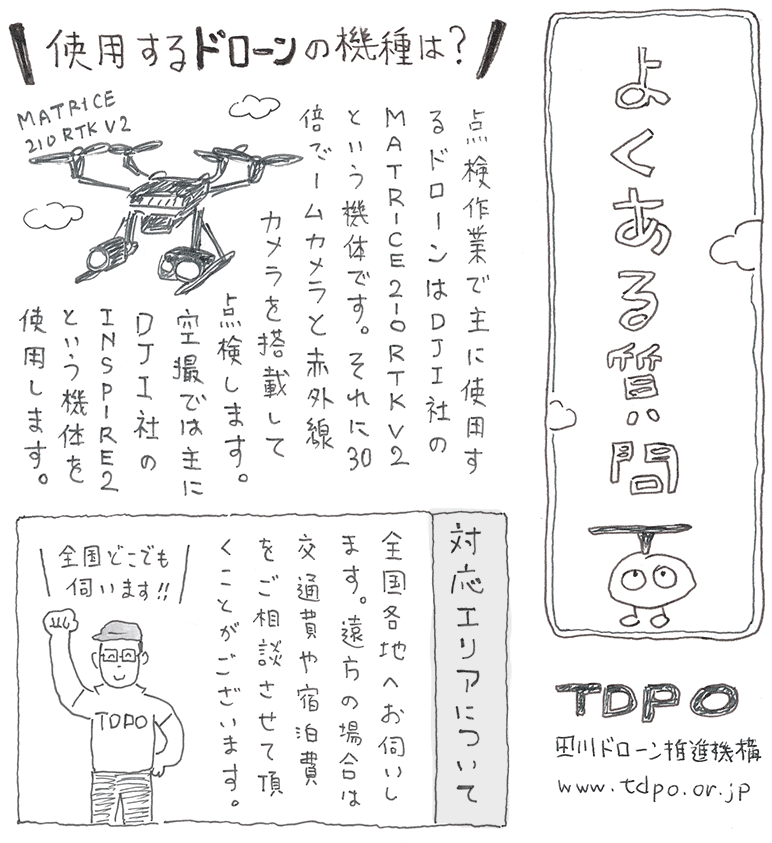 よくある質問
使用するドローンの機種は?
MATRICE
210 RTK V2
点検作業で主に使用す
るドローンはDJI社の
MATRICE210RTKV2
という機体です。それに30
倍ズームカメラと赤外線
カメラを搭載して
点検します。
空撮では主に
DJI社の
INSPIRE2
という機体を
使用します。
対応エリアについて
全国各地へお伺いし
ます。遠方の場合は
交通費や宿泊費
をご相談させて頂
くことがございます。
全国どこでも
伺います!!
TDPO
TDPO
田川ドローン推進機構
www.tdpo.or.jp